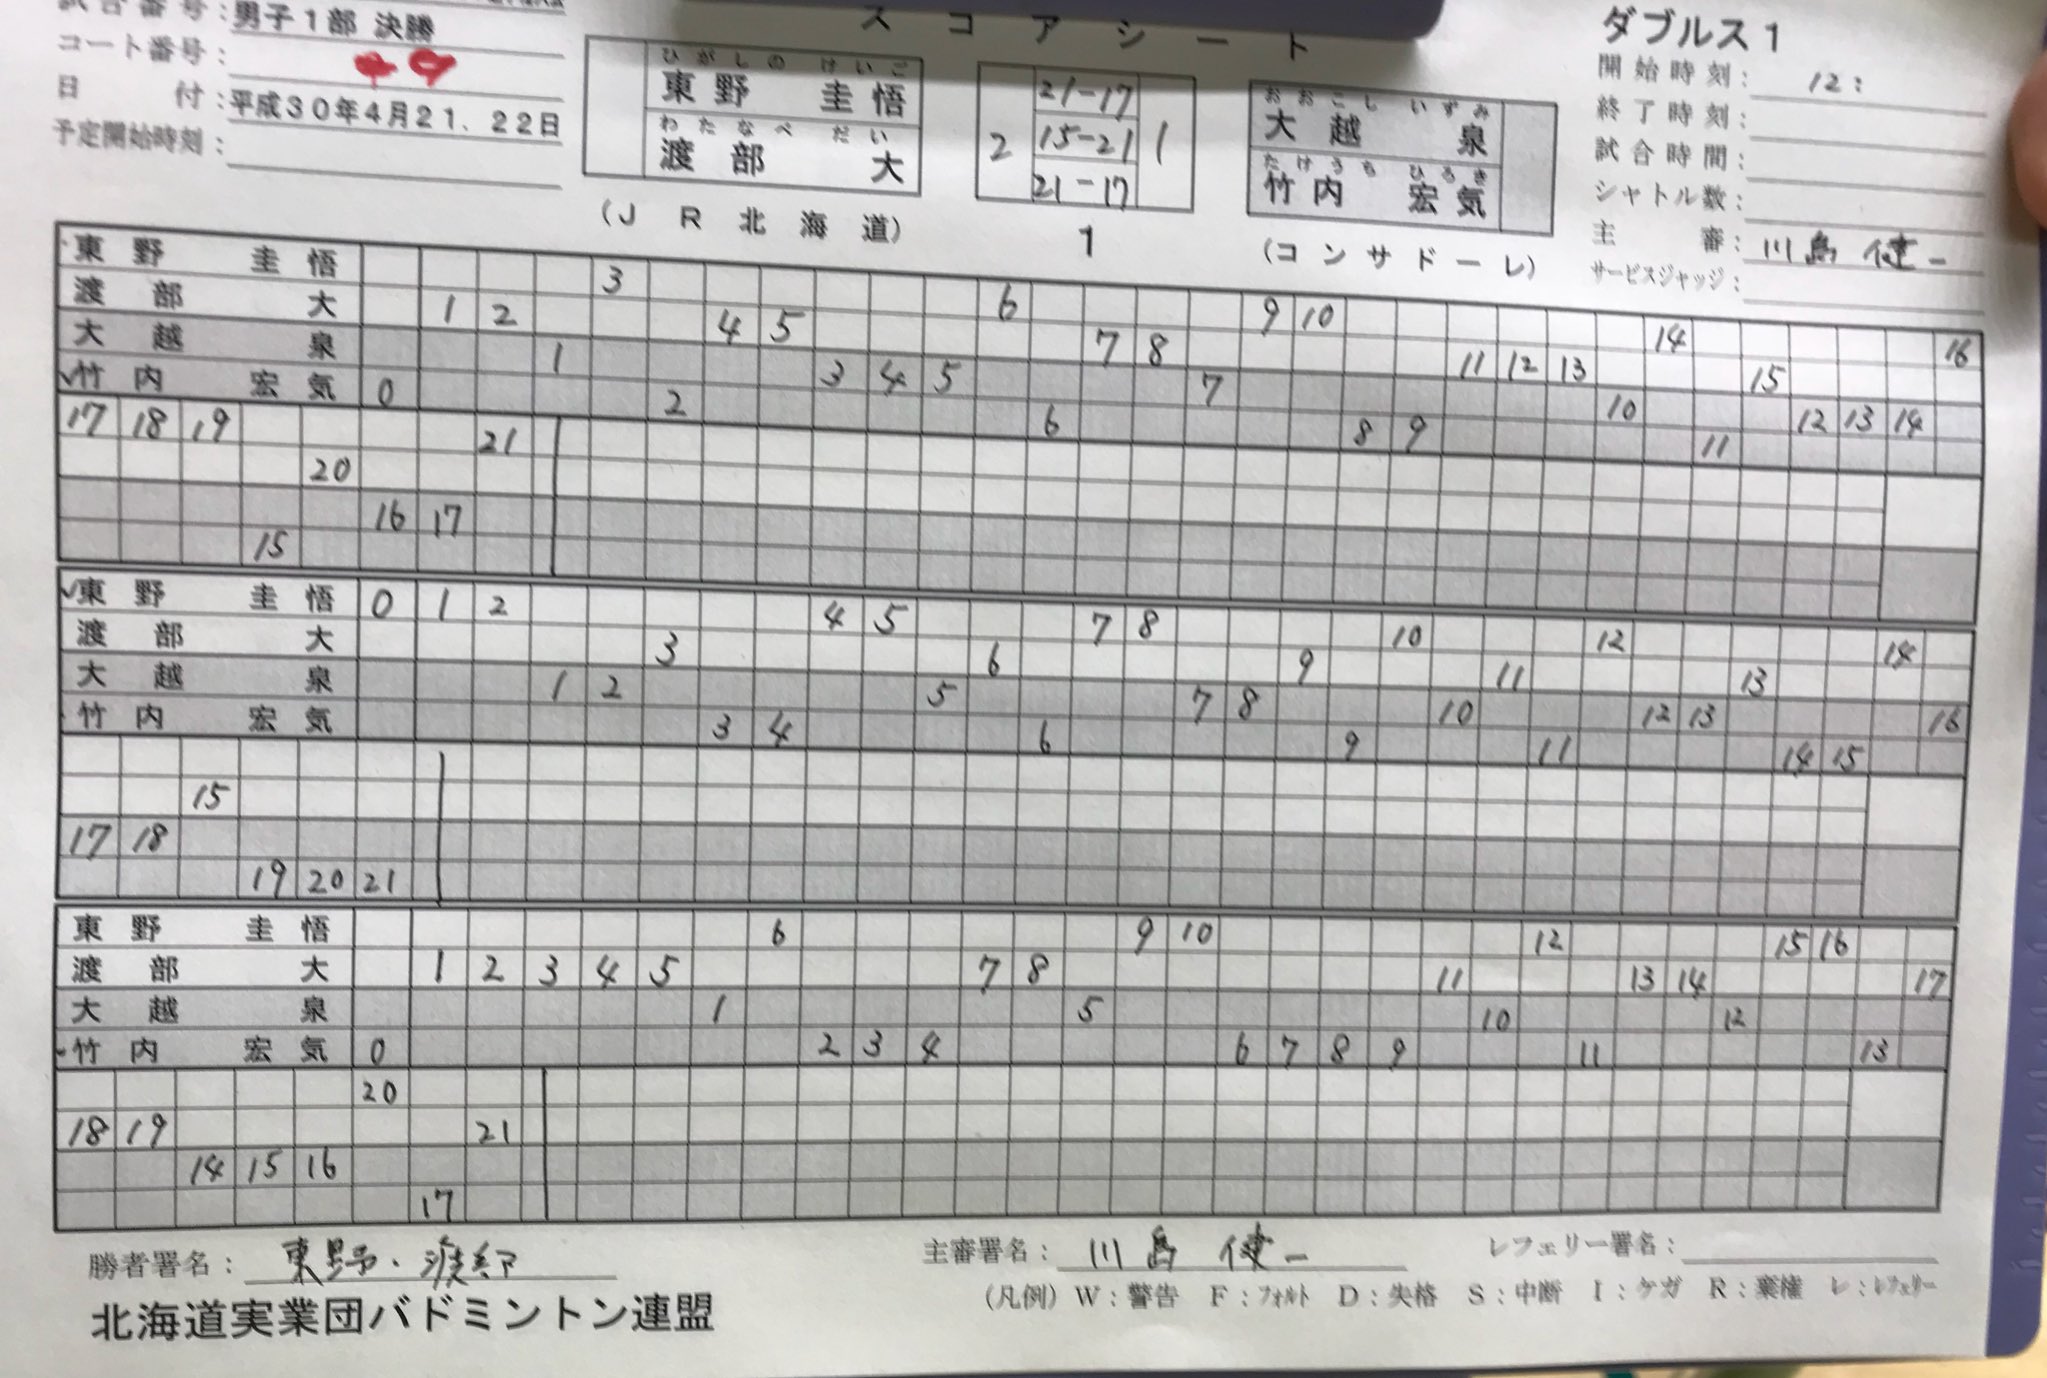 試合番号：男子１部 決勝
コート番号：
日付：平成３０年４月２１．２２日
予定開始時刻：
スコアシート
ひがしの けいご
東野 圭悟
わたなべ だい
渡部 大
（ＪＲ北海道）
2
21-17
15-21
21-17
1
1
おおこし いずみ
大越 泉
たけうち ひろき
竹内 宏気
（コンサドーレ）
ダブルス１
開始時刻： 12：
終了時刻：
試合時間：
シャトル数：
主審：川島 健一
サービスジャッジ：
東野 圭悟 3 6 9 10 14 16
渡部 大 1 2 4 5 7 8 11 12 13 15
大越 泉 1 3 4 5 7 10 12 13 14
✓竹内 宏気 0 2 6 8 9 11
17 18 19 21
20
16 17
15
✓東野 圭悟 0 1 2 4 5 7 8 10 12 14
渡部 大 3 6 9 11 13
大越 泉 1 2 5 7 8 10 12 13 16
竹内 宏気 3 4 6 9 11 14 15
15
17 18
19 20 21
東野 圭悟 6 9 10 12 15 16
渡部 大 1 2 3 4 5 7 8 11 13 14 17
大越 泉 1 5 10 12
竹内 宏気 0 2 3 4 6 7 8 9 11 13
20
18 19 21
14 15 16
17
勝者署名：東野・渡部
主審署名：川島 健一
レフェリー署名：
（凡例）Ｗ：警告 Ｆ：フォルト Ｄ：失格 Ｓ：中断 Ｉ：ケガ Ｒ：棄権 レ：レフェリー
北海道実業団バドミントン連盟